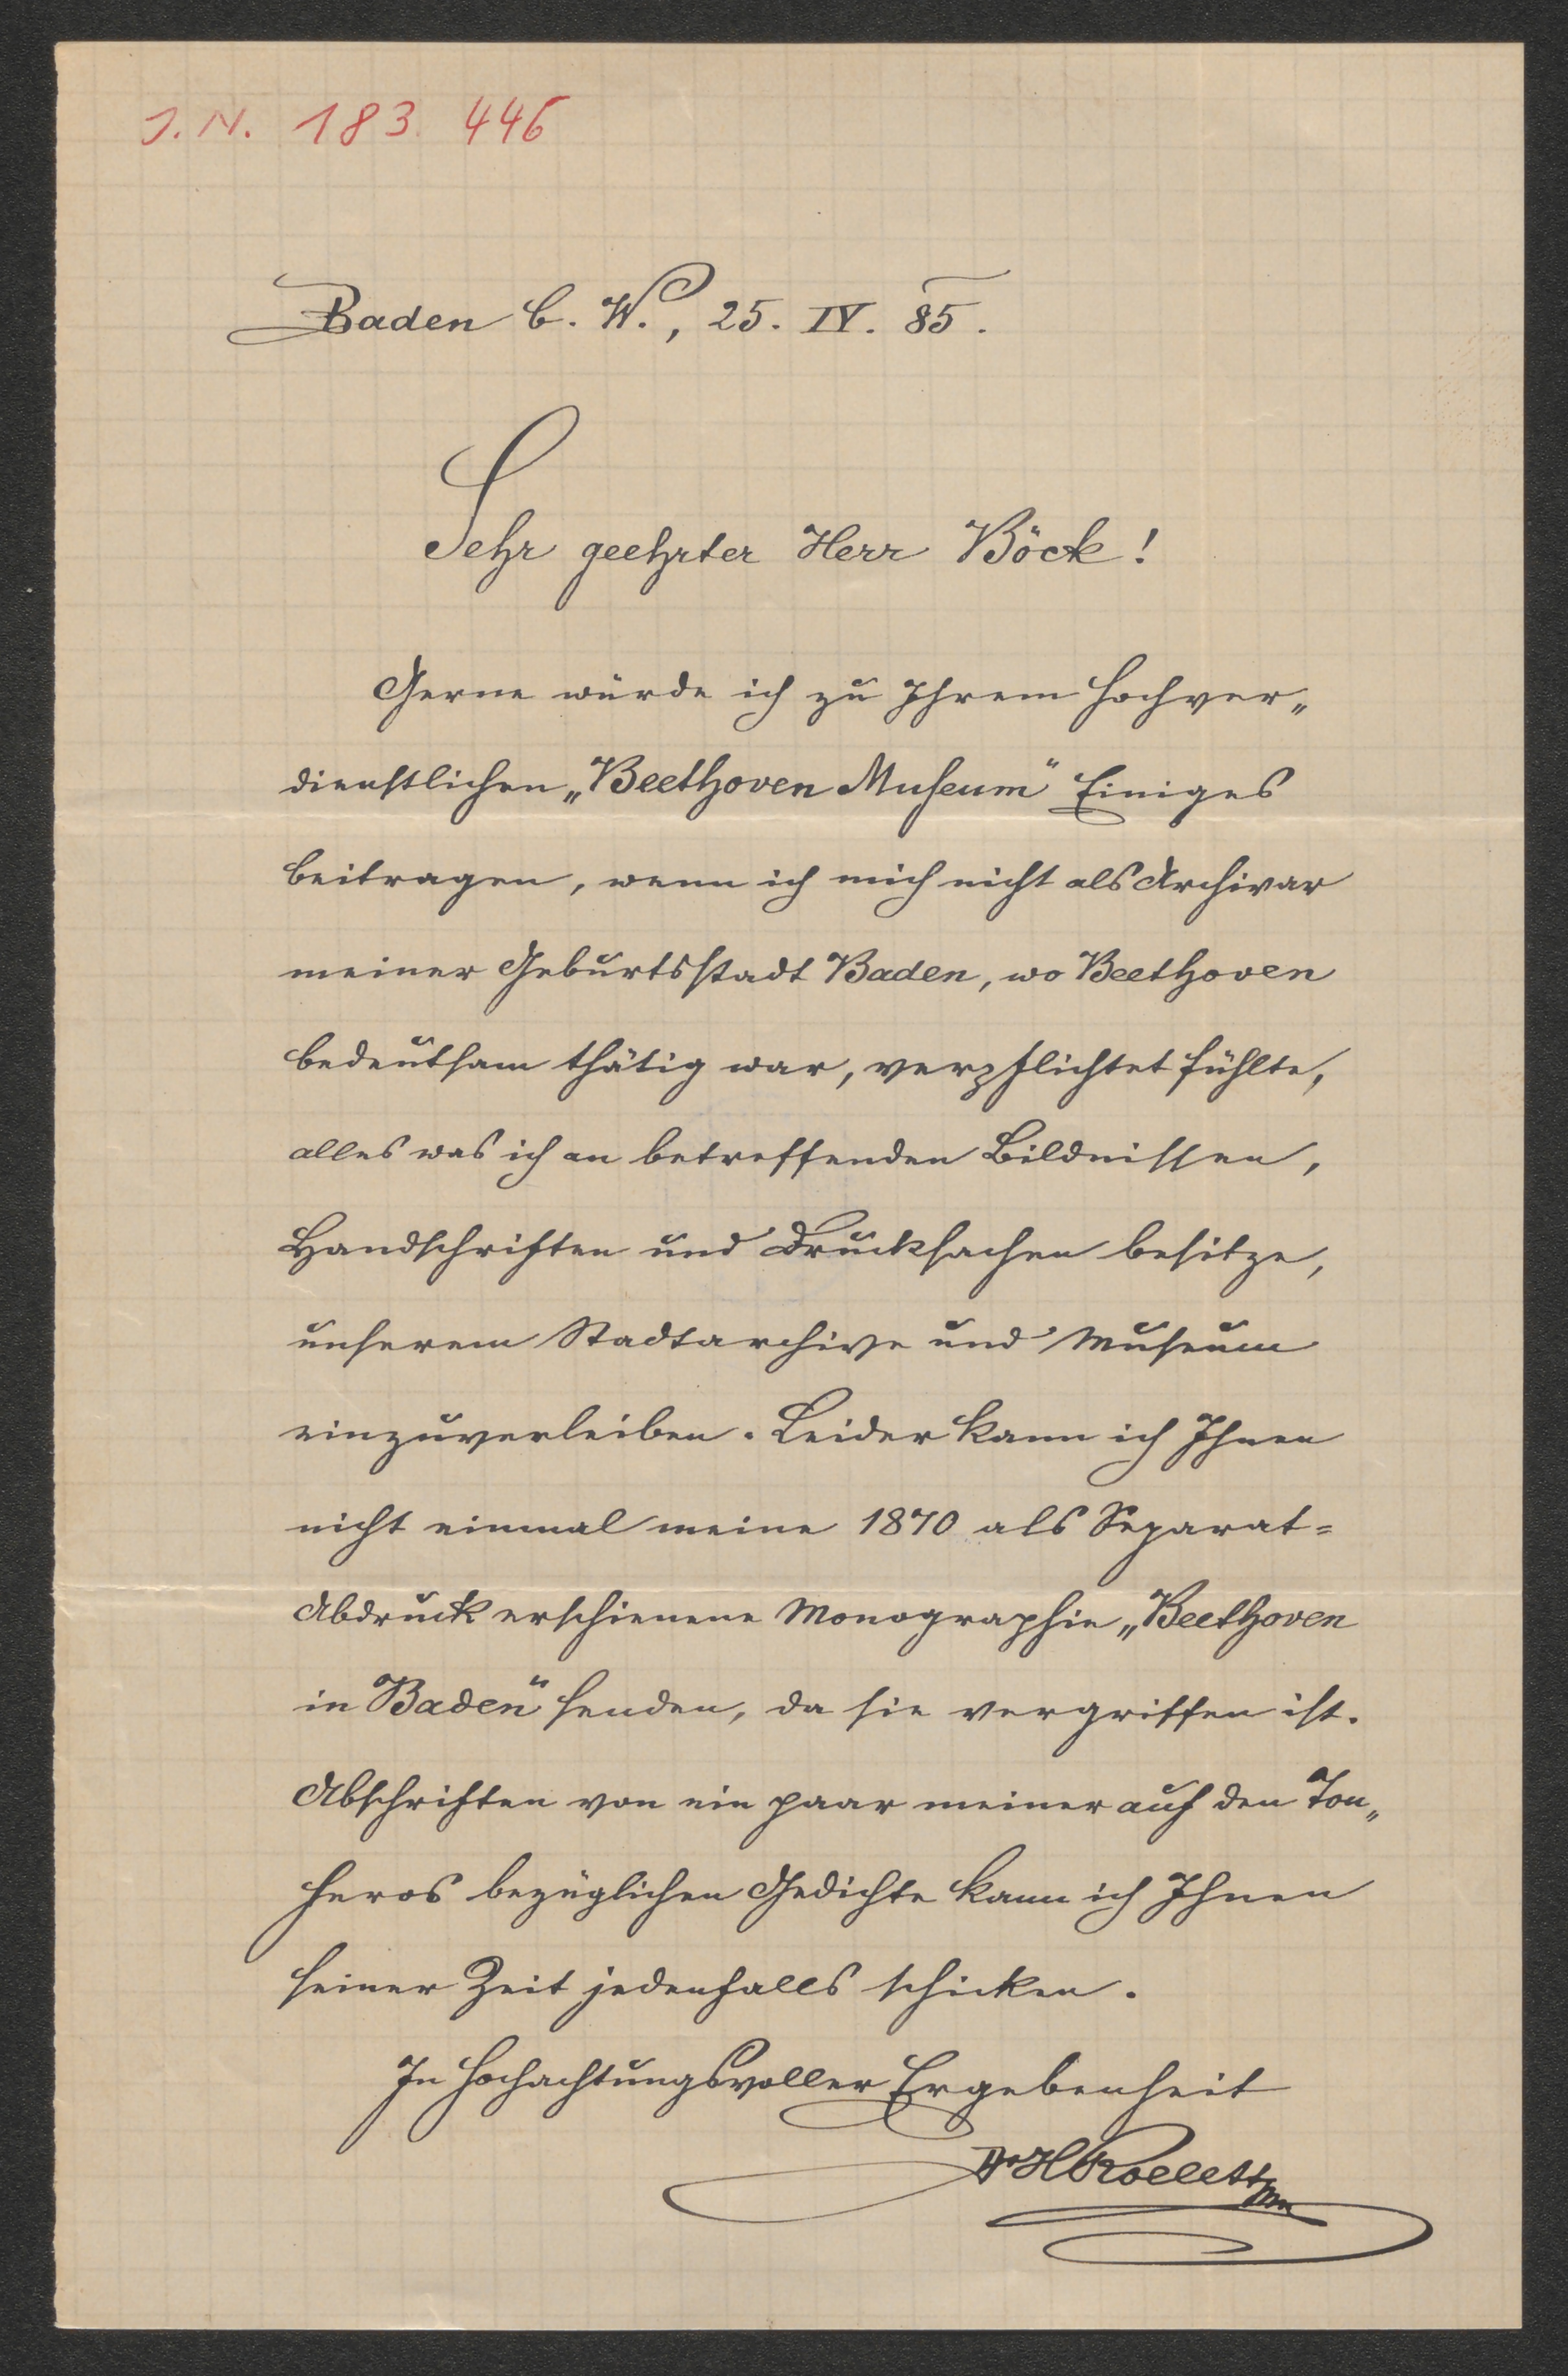 J. N. 183.446
Baden b. W., 25. IV. 85.
Sehr geehrter Herr Böck!
Gerne würde ich zu Ihrem hochver„
dienstlichen „Beethoven Museum“ Einiges
beitragen, wenn ich mich nicht als Archivar
meiner Geburtsstadt Baden, wo Beethoven
bedeutsam thätig war, verpflichtet fühlte,
alles was ich an betreffenden Bildnissen,
Handschriften und Drucksachen besitze,
unserem Stadtarchive und Museum
einzuverleiben. Leider kann ich Ihnen
nicht einmal meine 1870 als Separat=
Abdruck erschienene Monographie „Beethoven
in Baden“ senden, da sie vergriffen ist.
Abschriften von ein paar meiner auf den Ton„
heros bezüglichen Gedichte kann ich Ihnen
seiner Zeit jedenfalls schicken.
In hochachtungsvoller Ergebenheit
Dr H Rollett